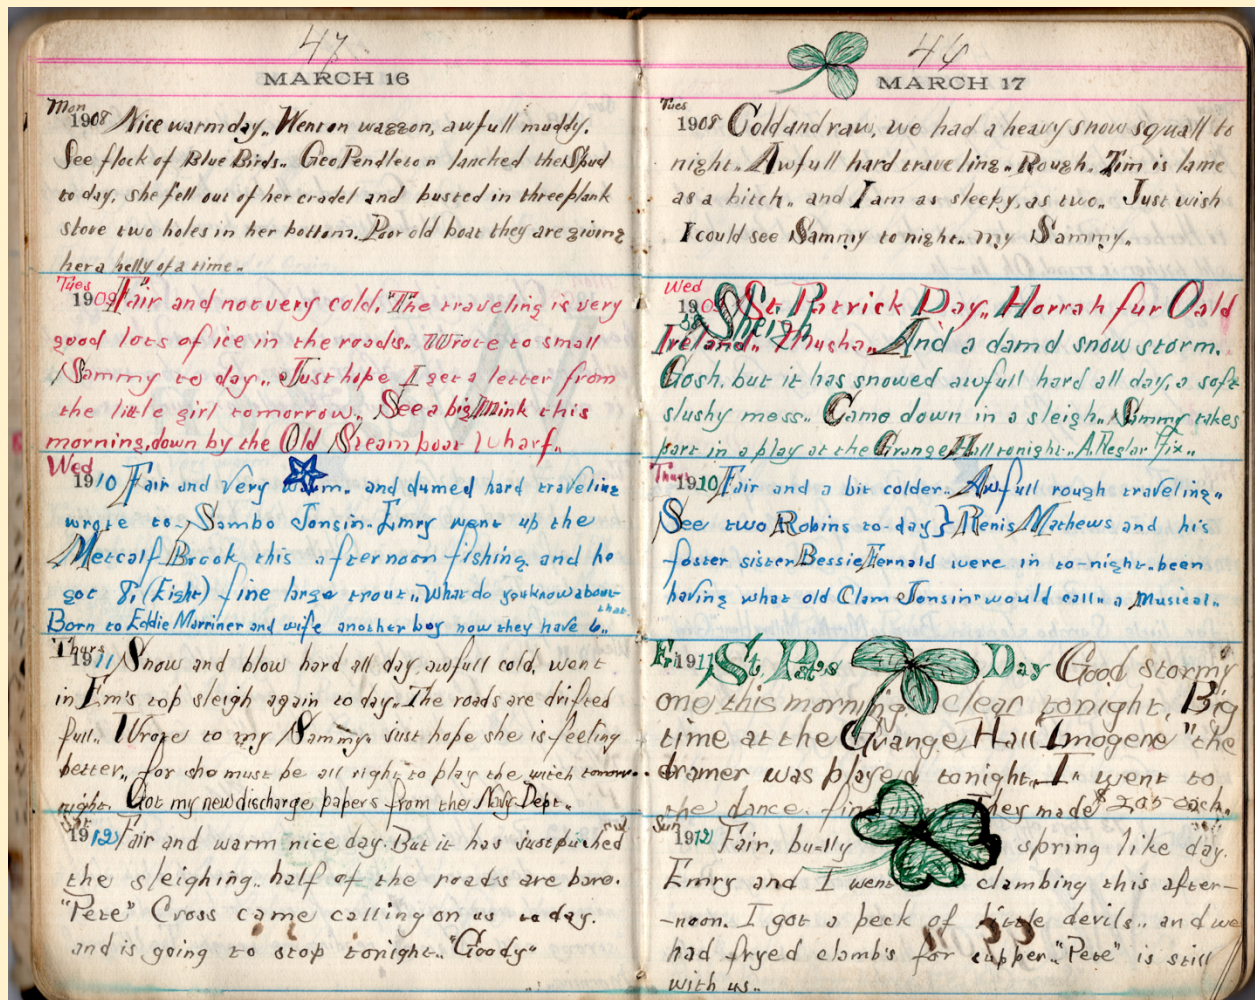 47
MARCH 16
Mon
1908 Nice warm day.. Went on waggon, awfull muddy.
See flock of Blue Birds.. Geo Pendleton lanched the Spud
to day, she fell out of her cradel and busted in three plank
stove two holes in her bottom. Poor old boat they are giving
her a helly of a time..
Tues
1909 Fair and not very cold. The traveling is very
good lots of ice in the roads.. Wrote to small
Sammy to day.. Just hope I get a letter from
the little girl tomorrow.. See a big Mink this
morning, down by the Old Steam boat Wharf..
Wed
1910 Fair and very warm. and dumed hard traveling
wrote to Sambo Jonsin. Emry went up the
Metcalf Brook this afternoon fishing and he
got 8, (Eight) fine large trout.. What do you know about
that
Born to Eddie Marriner and wife another boy now they have 6..
Thurs
1911 Snow and blow hard all day, awfull cold. went
in Em's top sleigh again to day. The roads are drifted
full.. Wrote to my Sammy. just hope she is feeling
better.. for she must be all right to play the witch tomorr..
night. Got my new discharge papers from the Navy Dept..
1912 Fair and warm nice day. But it has just puched
the sleighing.. half of the roads are bare.
"Pete" Cross came calling on us to day.
and is going to stop tonight.. "Goody"
44
MARCH 17
Tues
1908 Cold and raw, we had a heavy snow squall to
night.. Awfull hard traveling.. Rough. Tim is lame
as a bitch.. and I am as sleepy, as two.. Just wish
I could see Sammy to night.. my Sammy..
Wed
1909 St. Patrick Day.. Horrah fur Oald
Ireland.. Musha.. And a damd snow storm.
Gosh, but it has snowed awfull hard all day, a soft
slushy mess.. Came down in a sleigh. Sammy takes
part in a play at the Grange Hall tonight.. A Reglar Fix..
Thurs
1910 Fair and a bit colder.. Awfull rough traveling..
See two Robins to-day} Renis Mathews and his
foster sister Bessie Fernald were in to-night. been
having what old Clam Jonsin would call a Musical..
Fri 1911 St. Pat's Day Good stormy
one this morning. clear tonight. Big
time at the Grange Hall Imogene "the
dramer was played tonight.. I" went to
the dance. They made $ each.
Sun
1912 Fair, spring like day.
Emry and I went clambing this after-
-noon. I got a peck of little devils.. and we
had fryed clamb's for cupper.. "Pete" is still
with us..